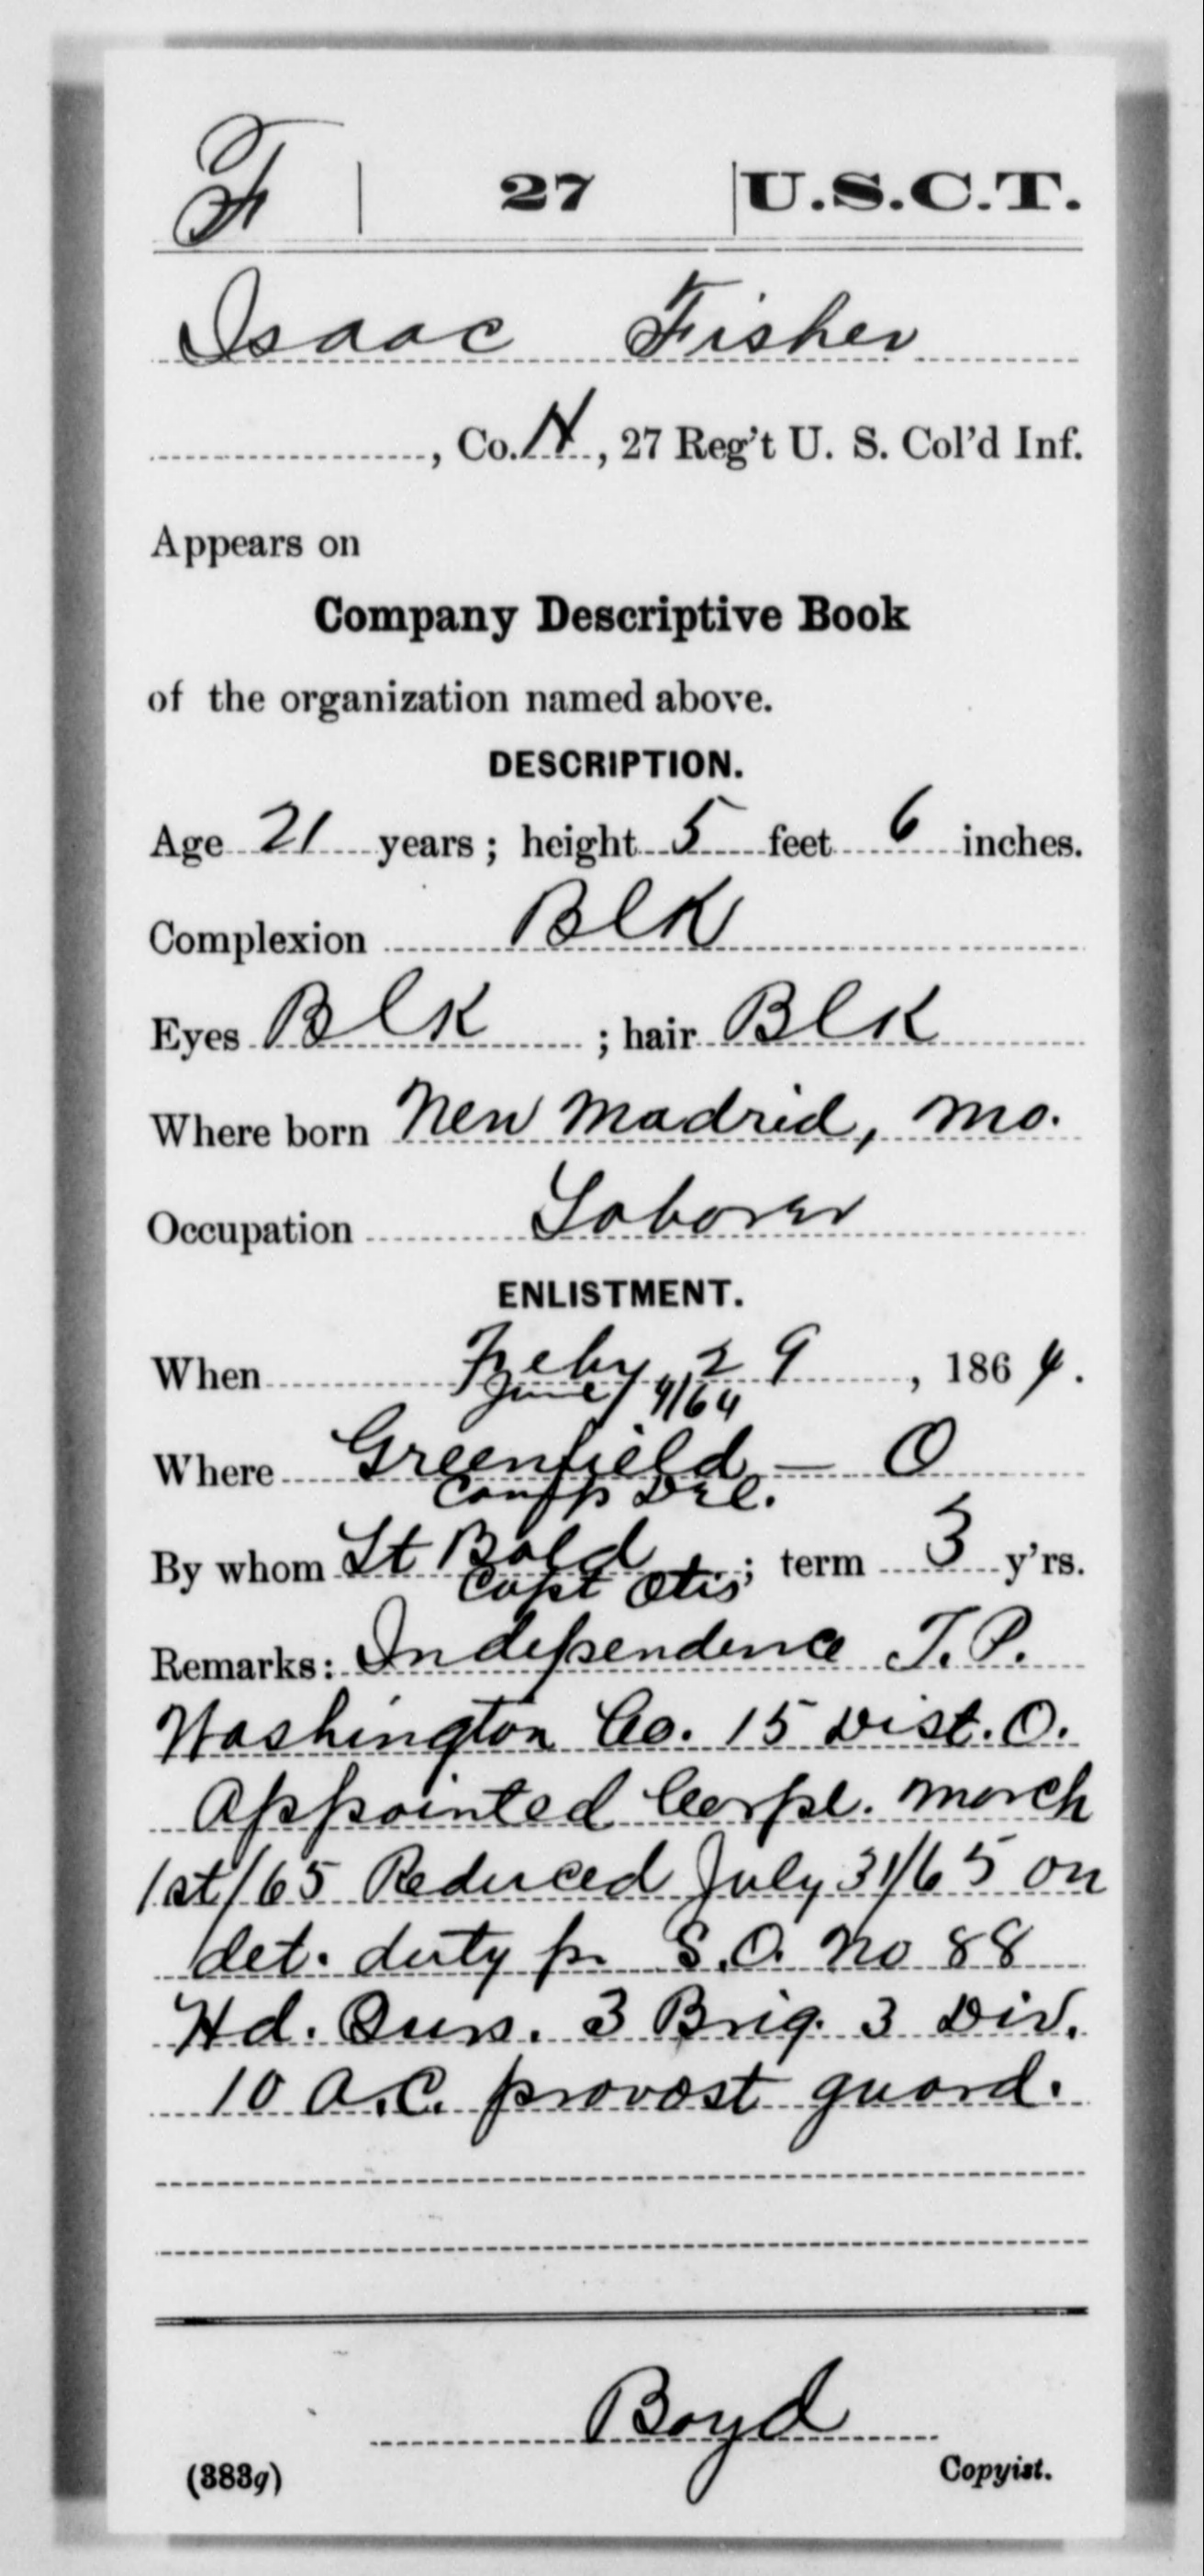 F | 27 | U.S.C.T.
Isaac Fisher
, Co. H, 27 Reg't U. S. Col'd Inf.
Appears on
Company Descriptive Book
of the organization named above.
DESCRIPTION.
Age 21 years; height 5 feet 6 inches.
Complexion Blk
Eyes Blk ; hair Blk
Where born New Madrid, Mo.
Occupation Laborer
ENLISTMENT.
When Feby 29, 1864.
June 4/64
Where Greenfield — O
Camp Del.
By whom Lt Bald ; term 3 y'rs.
Capt Otis
Remarks: Independence T.P.
Washington Co. 15 Dist. O.
Appointed Corpl. March
1st/65 Reduced July 31/65 on
det. duty pr S.O. No 88
Hd. Qurs. 3 Brig. 3 Div.
10 A.C. provost guard.
Boyd
(383g) Copyist.